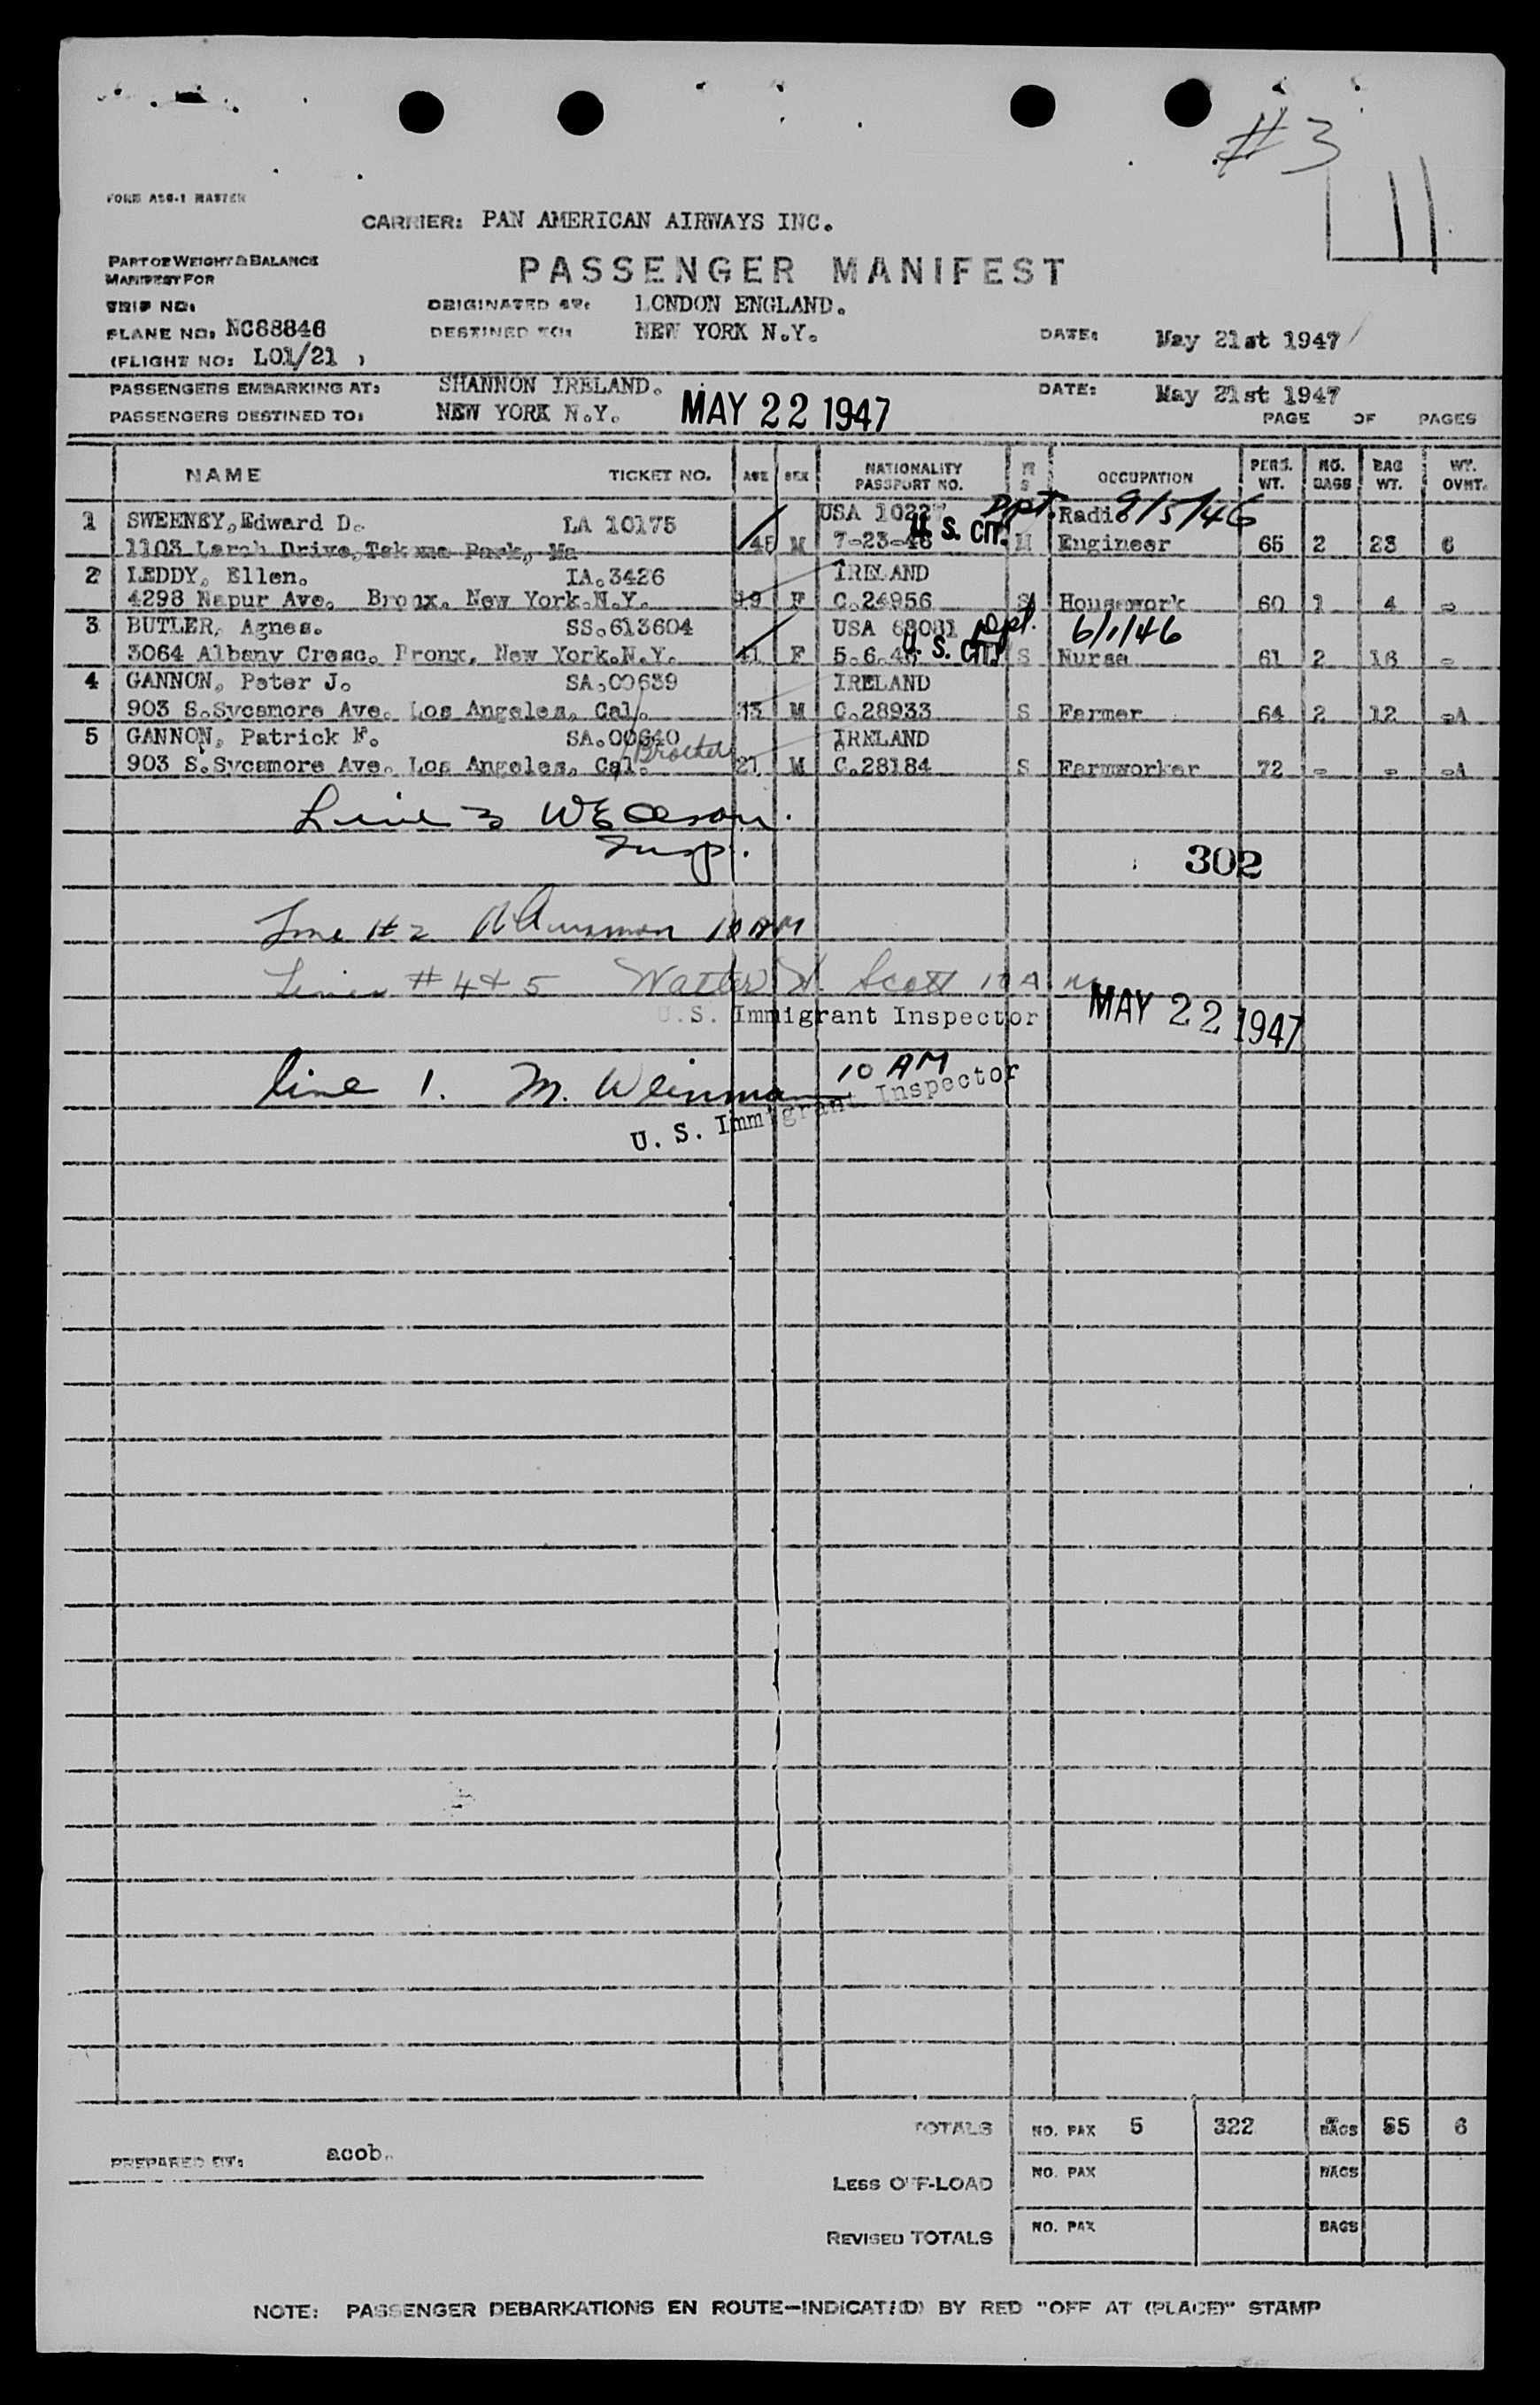 #3
11
FORM ASG-1 MASTER
CARRIER: PAN AMERICAN AIRWAYS INC.
PART OF WEIGHT & BALANCE
MANIFEST FOR
PASSENGER MANIFEST
TRIP NO:
ORIGINATED AT: LONDON ENGLAND.
PLANE NO: NC88846
DESTINED TO: NEW YORK N.Y.
DATE: May 21st 1947
(FLIGHT NO: LO1/21 )
PASSENGERS EMBARKING AT: SHANNON IRELAND.
DATE: May 21st 1947
PASSENGERS DESTINED TO: NEW YORK N.Y.
MAY 22 1947
PAGE OF PAGES
NAME TICKET NO. AGE SEX NATIONALITY PASSPORT NO. M S OCCUPATION PERS. WT. NO. BAGS BAG WT. WT. OVHT.
1 SWEENEY, Edward D. LA 10175 USA 10227 Ppt. Radio 9/5/46
1103 Larch Drive, Takoma Park, Ma 45 M 7-23-46 U. S. CIT. M Engineer 65 2 23 6
2 LEDDY, Ellen. IA.3426 IRELAND
4298 Napur Ave. Bronx. New York.N.Y. 19 F C.24956 S Housework 60 1 4 -
3 BUTLER, Agnes. SS.613604 USA 68081 Ppt. 6/1/46
3064 Albany Cresc. Bronx, New York.N.Y. 41 F 5.6.46 U. S. CIT. S Nurse 61 2 16 -
4 GANNON, Peter J. SA.00639 IRELAND
903 S.Sycamore Ave. Los Angeles, Cal. M C.28933 S Farmer 64 2 12 -A
5 GANNON, Patrick F. SA.00640 Brother IRELAND
903 S.Sycamore Ave. Los Angeles, Cal. 21 M C.28184 S Farmworker 72 - - -A
Line 3
Insp.
302
Line #2 10 AM
Lines #4 & 5 Walter H. Scott 10 A.M.
U.S. Immigrant Inspector
MAY 22 1947
line 1. M. Weinman 10 AM
U. S. Immigrant Inspector
TOTALS NO. PAX 5 322 BAGS 55 6
PREPARED BY: acob.
LESS OFF-LOAD NO. PAX BAGS
REVISED TOTALS NO. PAX BAGS
NOTE: PASSENGER DEBARKATIONS EN ROUTE—INDICAT(D) BY RED "OFF AT (PLACE)" STAMP